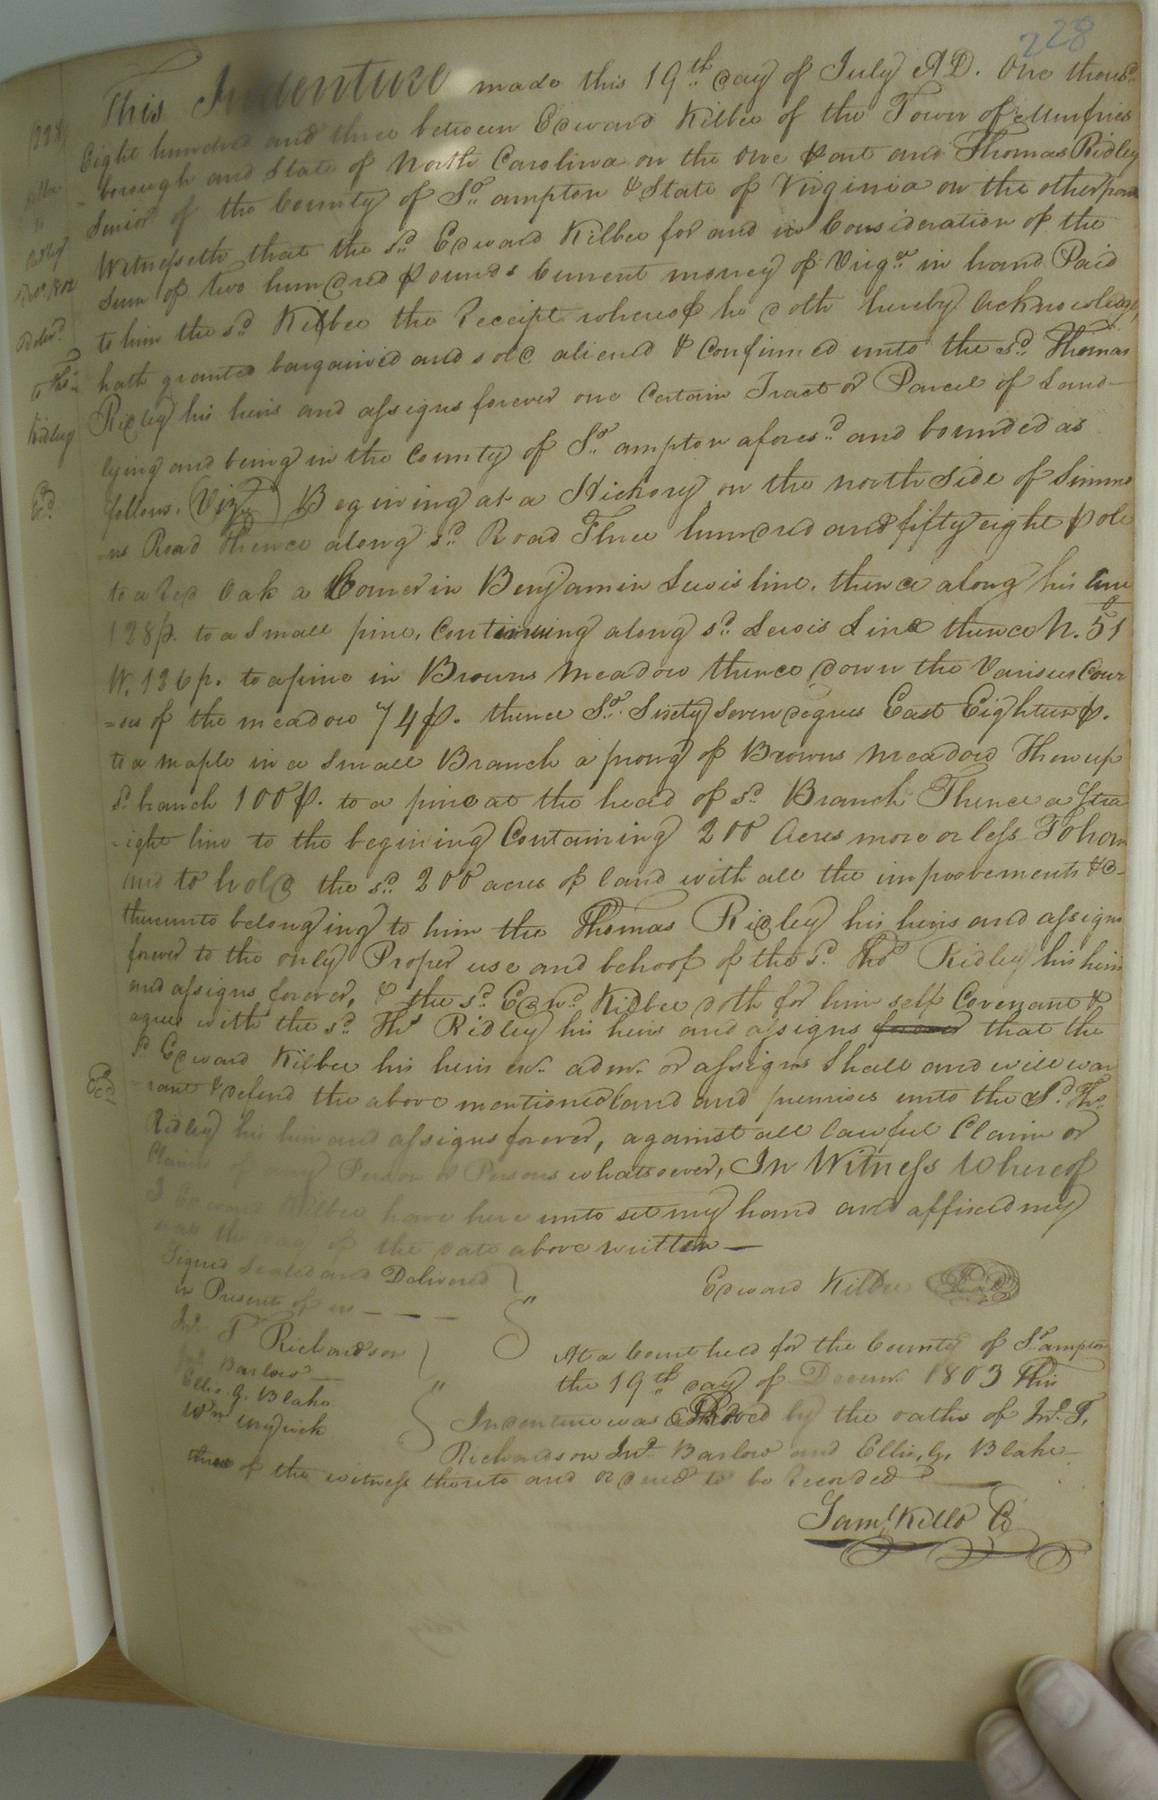 228
This Indenture made this 19th day of July AD. One thousd
Eight hundred and three between Edward Kilbee of the Town of Murfries
-borough and State of North Carolina on the One part and Thomas Ridley
Senior of the County of So. ampton & State of Virginia on the other part
Witnesseth that the sd. Edward Kilbee for and in Consideration of the
Sum of two hundred pounds Current money of Virga. in hand Paid
to him the sd. Kilbee the Receipt whereof he doth hereby Acknowledge,
hath granted bargained and sold aliened & Confirmed unto the sd. Thomas
Ridley his heirs and assigns forever one Certain Tract or Parcel of Land
lying and being in the County of So. ampton aforesd. and bounded as
follows. (Vizt.) Begining at a Hickory on the north Side of Simmo
-ns Road thence along sd. Road Three hundred and fifty eight pole
to a Red Oak a Corner in Benjamin Lewis line. thence along his line
128p. to a Small pine, Continuing along sd. Lewis Line thence N. 51
W. 136p. to a pine in Browns Meadow thence down the Various Cour
=ses of the meadow 74p. thence So. Sixty Seven degrees East Eighteen p.
to a maple in a Small Branch a prong of Browns Meadow Then up
sd. branch 100p. to a pine at the head of sd. Branch Thence a Stra
-ight line to the begining Containing 200 Acres more or less To have
and to hold the sd. 200 acres of land with all the improvements &c-
thereunto belonging to him the Thomas Ridley his heirs and assigns
forever to the only Proper use and behoof of the sd. Thos Ridley his heirs
and assigns forever, & the sd. Edwd. Kilbee doth for him self Covenant &
agree with the sd. Thos Ridley his heirs and assigns forever that the
sd Edward Kilbee his heirs exr. admr. or assigns Shall and will war
rant & defend the above mentioned land and premises unto the Sd. Thos.
Ridley his heirs and assigns forever, against all lawful Claim or
Claims of any Person or Persons whatsoever, In Witness Whereof
I Edward Kilbee have here unto set my hand and affixed my
seal the day of the date above written —
Signed Sealed and Delivered
in Presents of us — — —
Edward Kilbee
Jno. T. Richardson
Jno. Barlow
Ellis. G. Blake
Wm
At a Court held for the County of So. ampton
the 19th day of Decemr. 1803 This
Indenture was Proved by the oaths of Jno. T.
Richardson Jno. Barlow and Ellis. G. Blake
three of the witness thereto and ordered to be Recorded
Saml. Kello Co